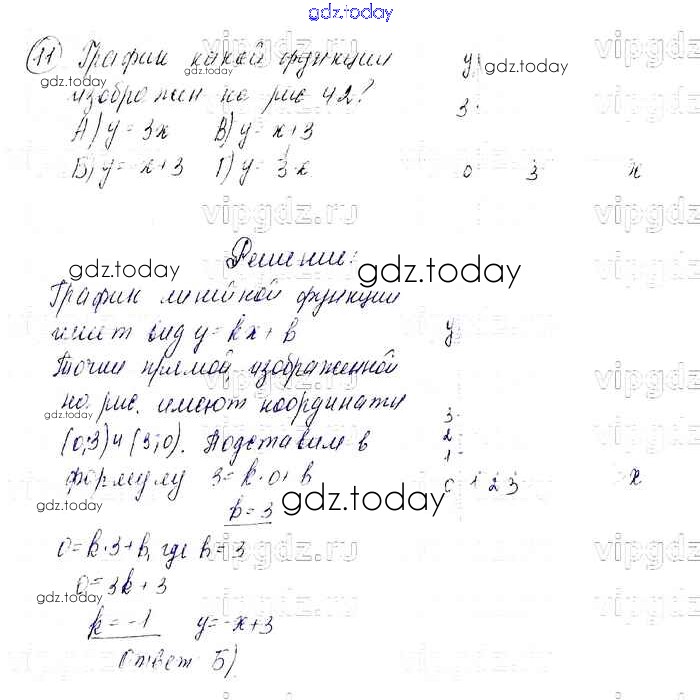 gdz.today
11 График какой функции
изображен на рис 42?
А) y = 3x В) y = x+3
Б) y = -x+3 Г) y = 3x
y
3
0 3 x
Решение:
График линейной функции
имеет вид y = kx + b
Точки прямой, изображенной
на рис. имеют координаты
(0;3) и (3;0). Подставим в
формулу 3 = k·0 + b
b = 3
y
3
2
1
0 1 2 3 x
0 = k·3 + b, где b = 3
0 = 3k + 3
k = -1 y = -x+3
Ответ Б)
gdz.today
gdz.today
gdz.today
gdz.today
gdz.today
gdz.today
gdz.today
gdz.today
gdz.today
vipgdz.ru
vipgdz.ru
vipgdz.ru
vipgdz.ru
vipgdz.ru